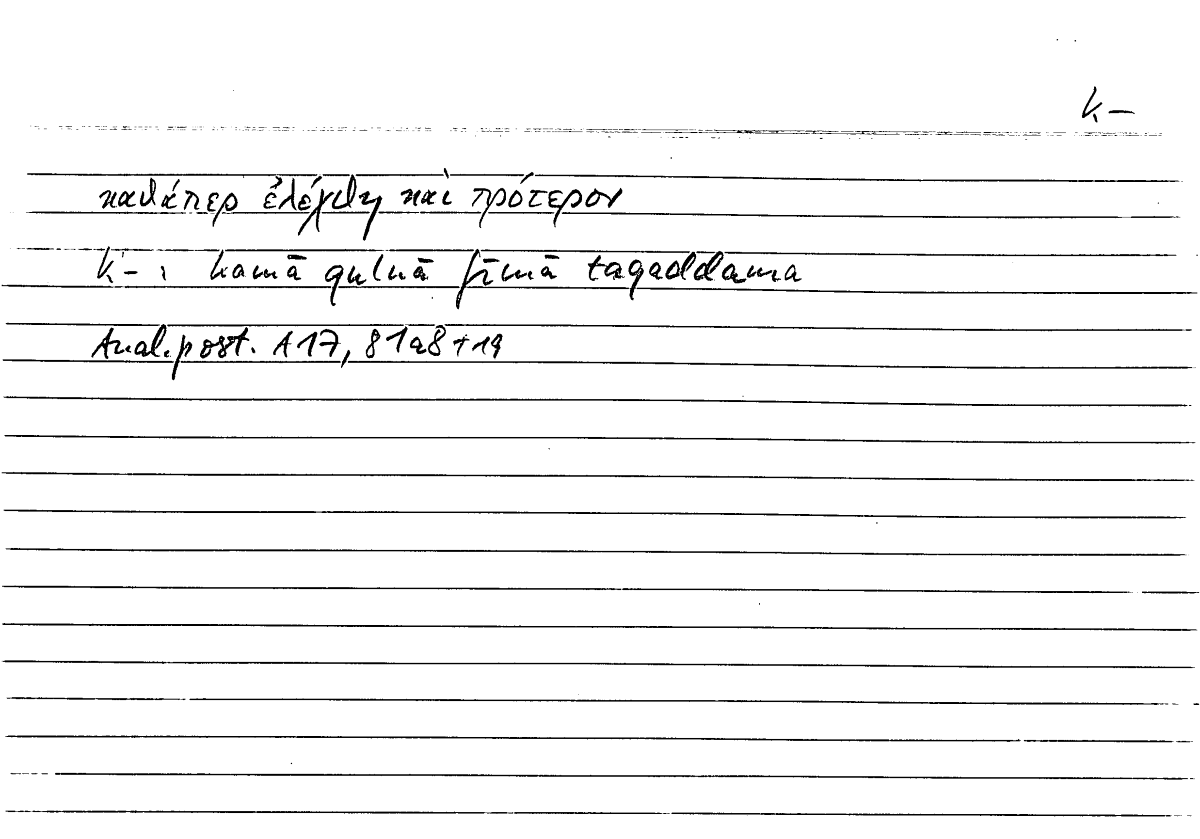 k-
καθάπερ ἐλέχθη καὶ πρότερον
k- : kamā qulnā fīmā taqaddama
Anal. post. A 17, 81a8 + 19